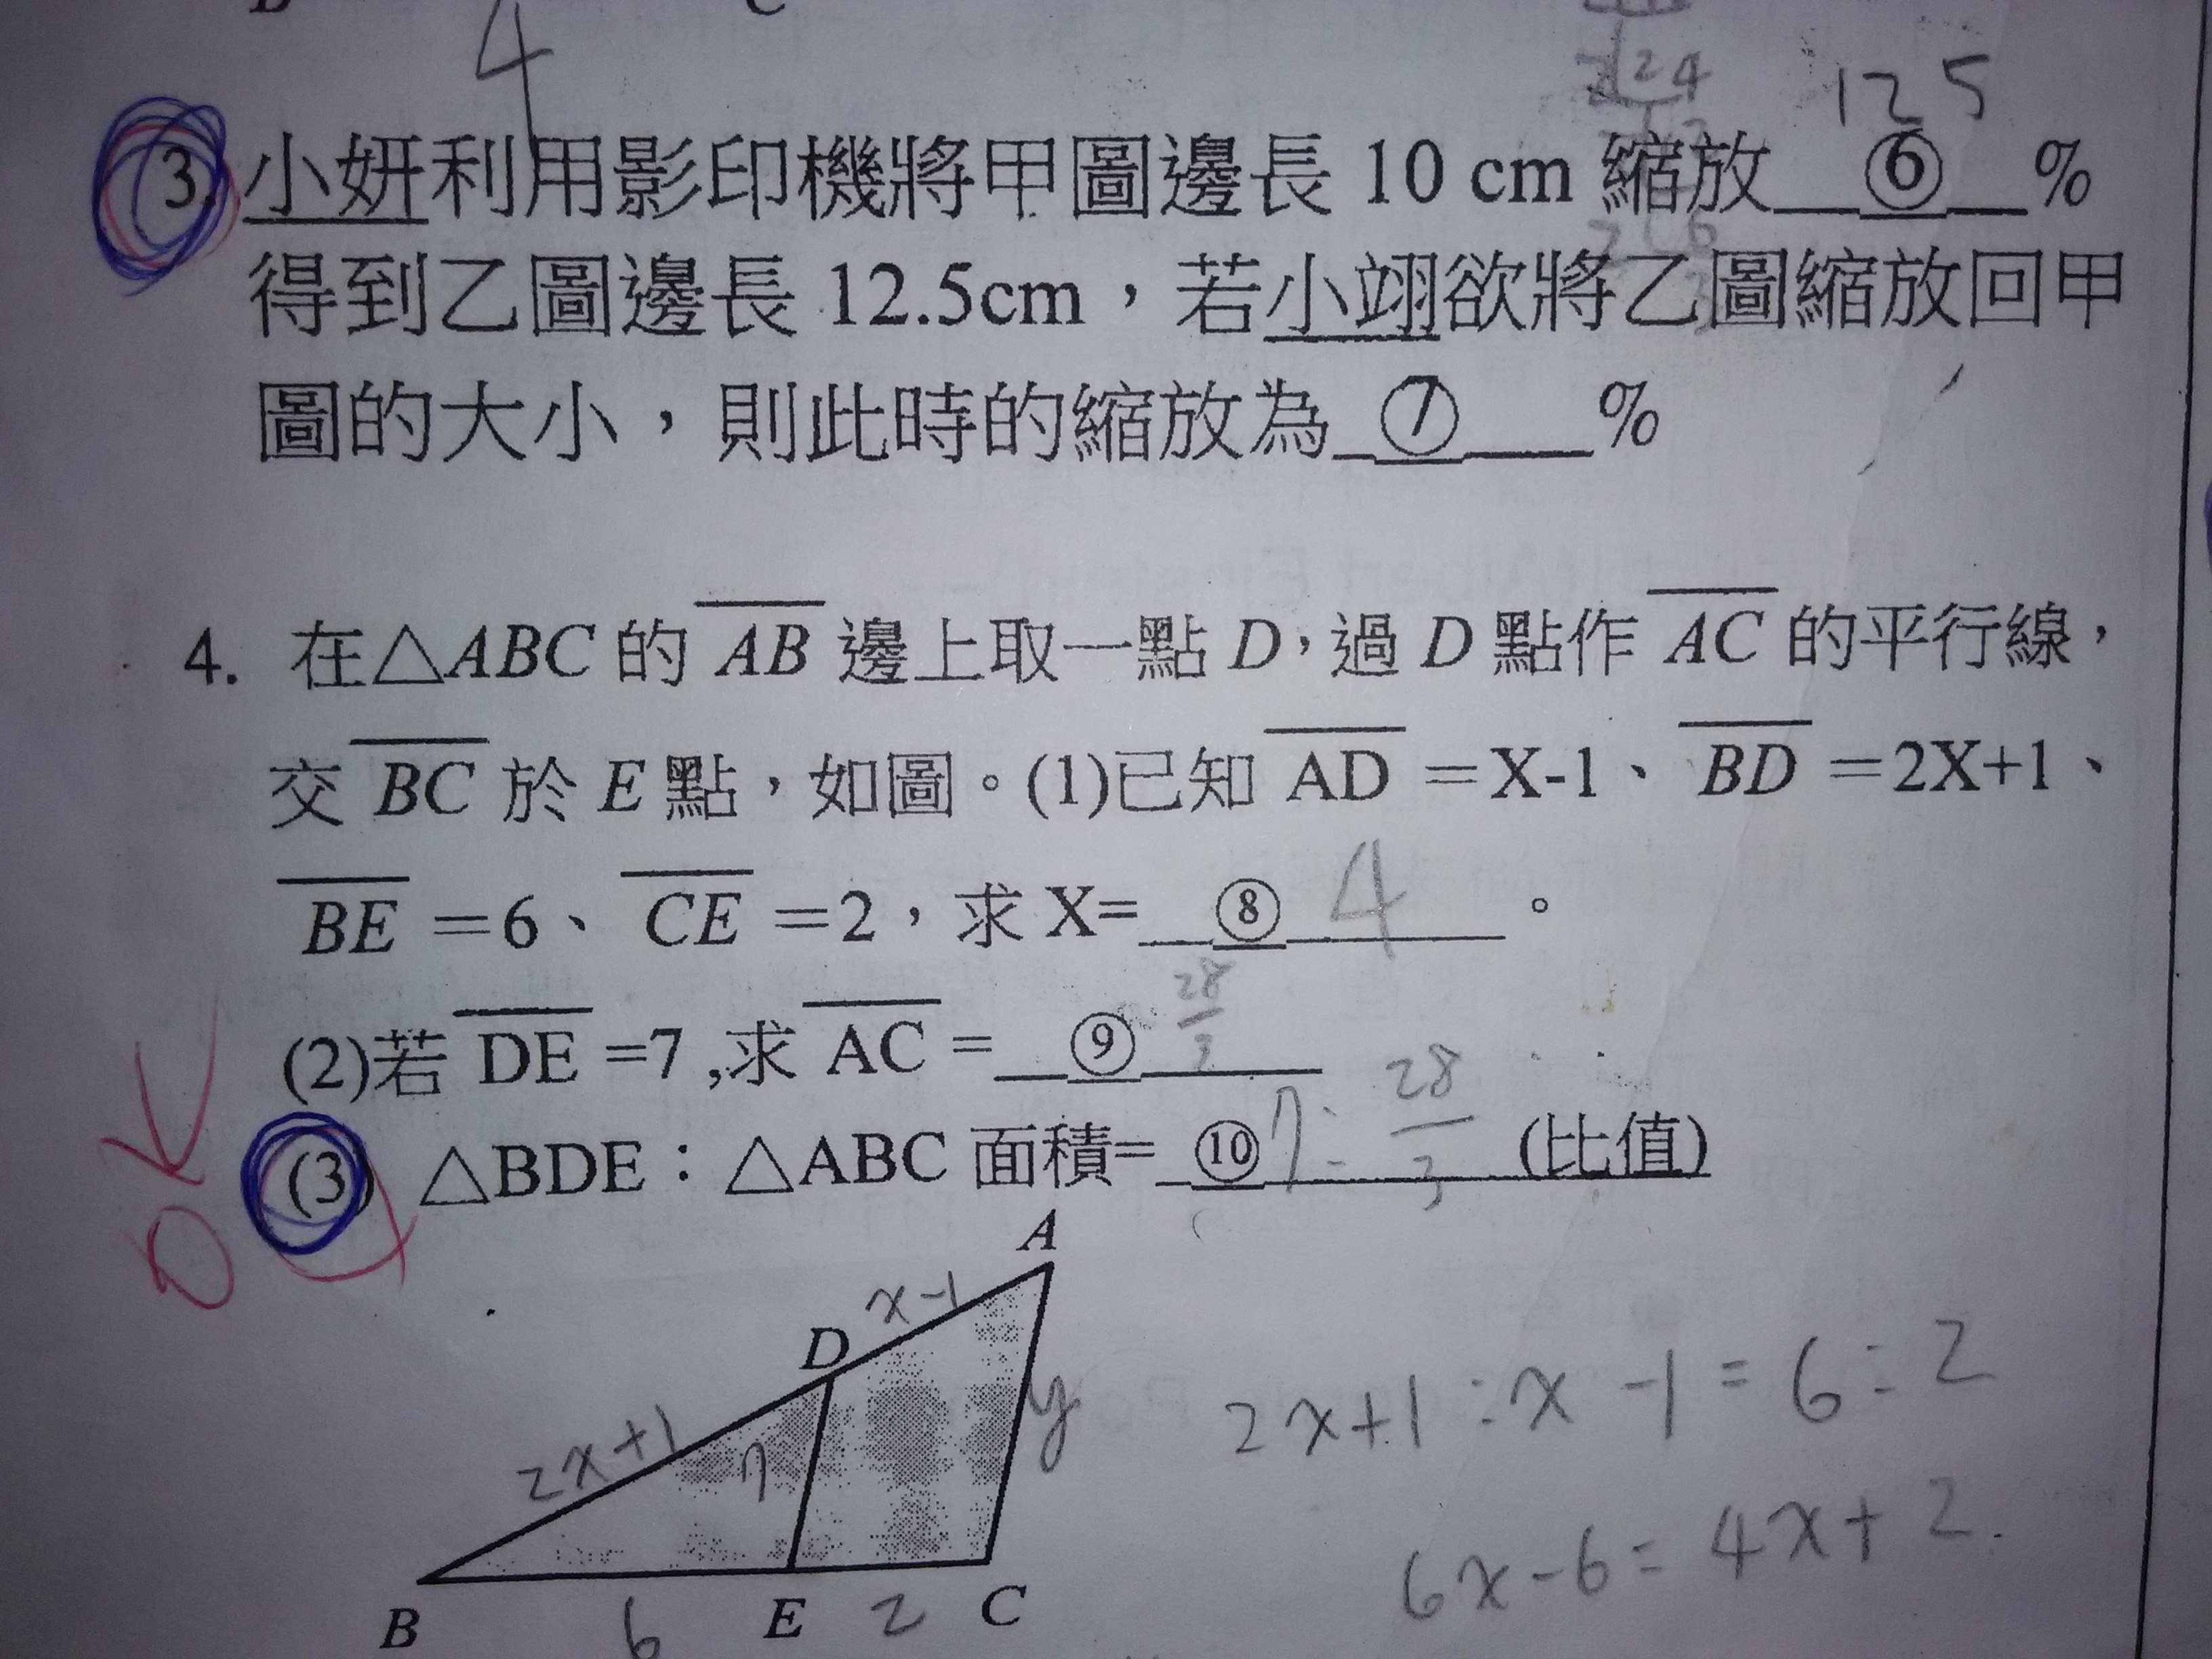 4
24
125
3. 小妍利用影印機將甲圖邊長 10 cm 縮放 ⑥ %
得到乙圖邊長 12.5cm，若小翊欲將乙圖縮放回甲
圖的大小，則此時的縮放為 ⑦ %
4. 在△ABC 的 AB 邊上取一點 D，過 D 點作 AC 的平行線，
交 BC 於 E 點，如圖。(1)已知 AD =X-1、 BD =2X+1、
BE =6、 CE =2，求 X= ⑧ 4 。
(2)若 DE =7 ,求 AC = ⑨ 28/3
(3) △BDE：△ABC 面積= ⑩ 7: 28/3 (比值)
OK
A
x-1
D
2x+1
7
y
2x+1:x-1=6:2
6x-6=4x+2
B
6
E
2
C